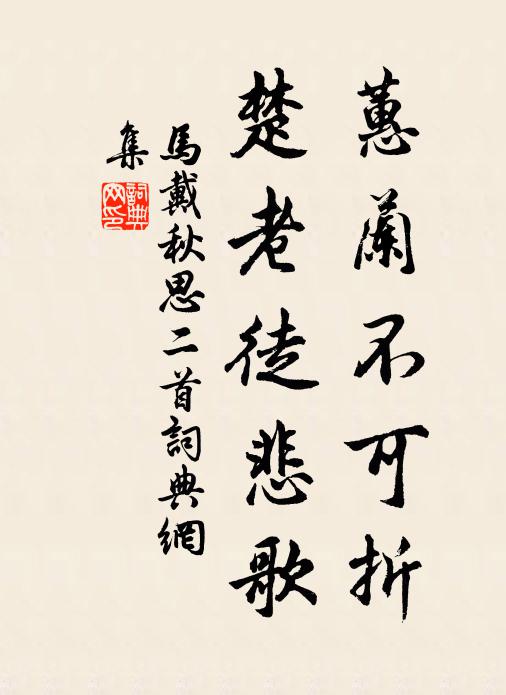 蕙蘭不可折
楚老徒悲歌
馬戴秋思二首詞典網
集
詞典
网印